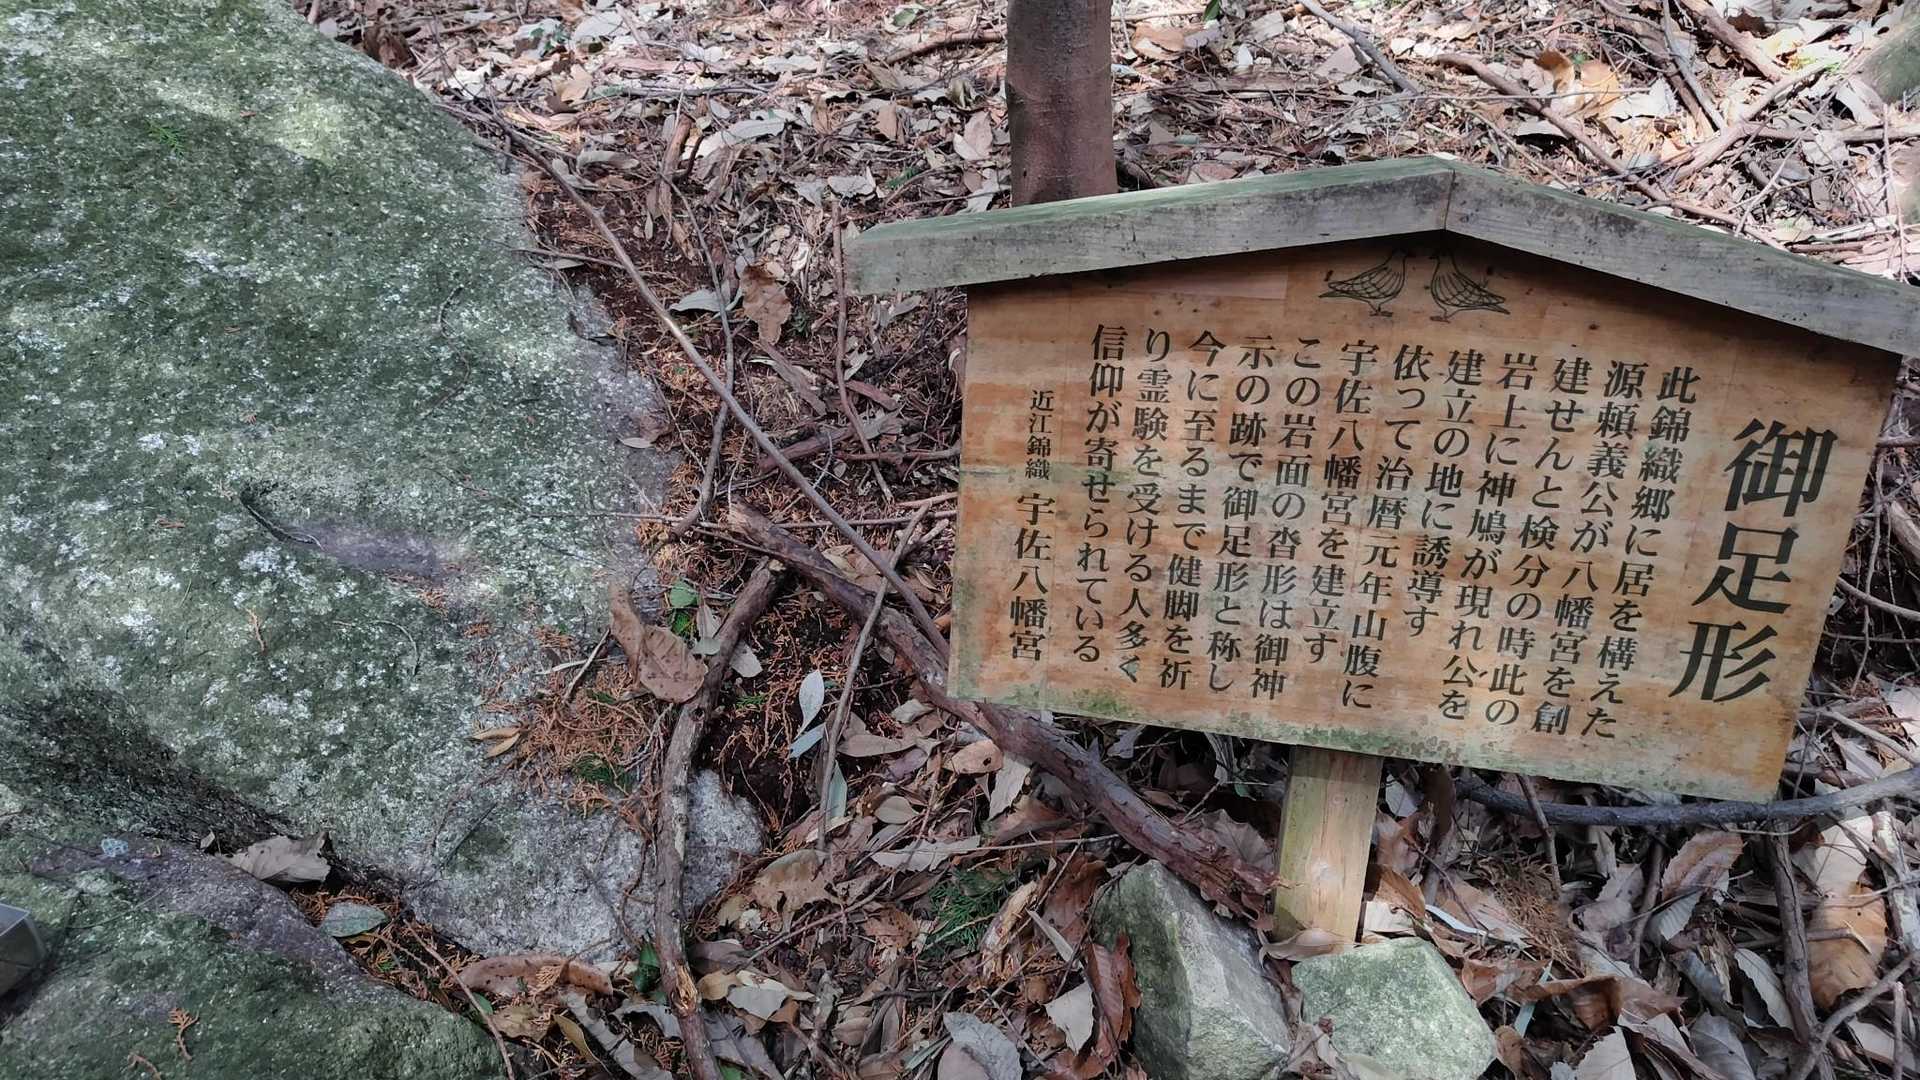 御足形
此錦織郷に居を構えた
源頼義公が八幡宮を創
建せんと検分の時此の
岩上に神鳩が現れ公を
建立の地に誘導す
依って治暦元年山腹に
宇佐八幡宮を建立す
この岩面の沓形は御神
示の跡で御足形と称し
今に至るまで健脚を祈
り霊験を受ける人多く
信仰が寄せられている
近江錦織 宇佐八幡宮